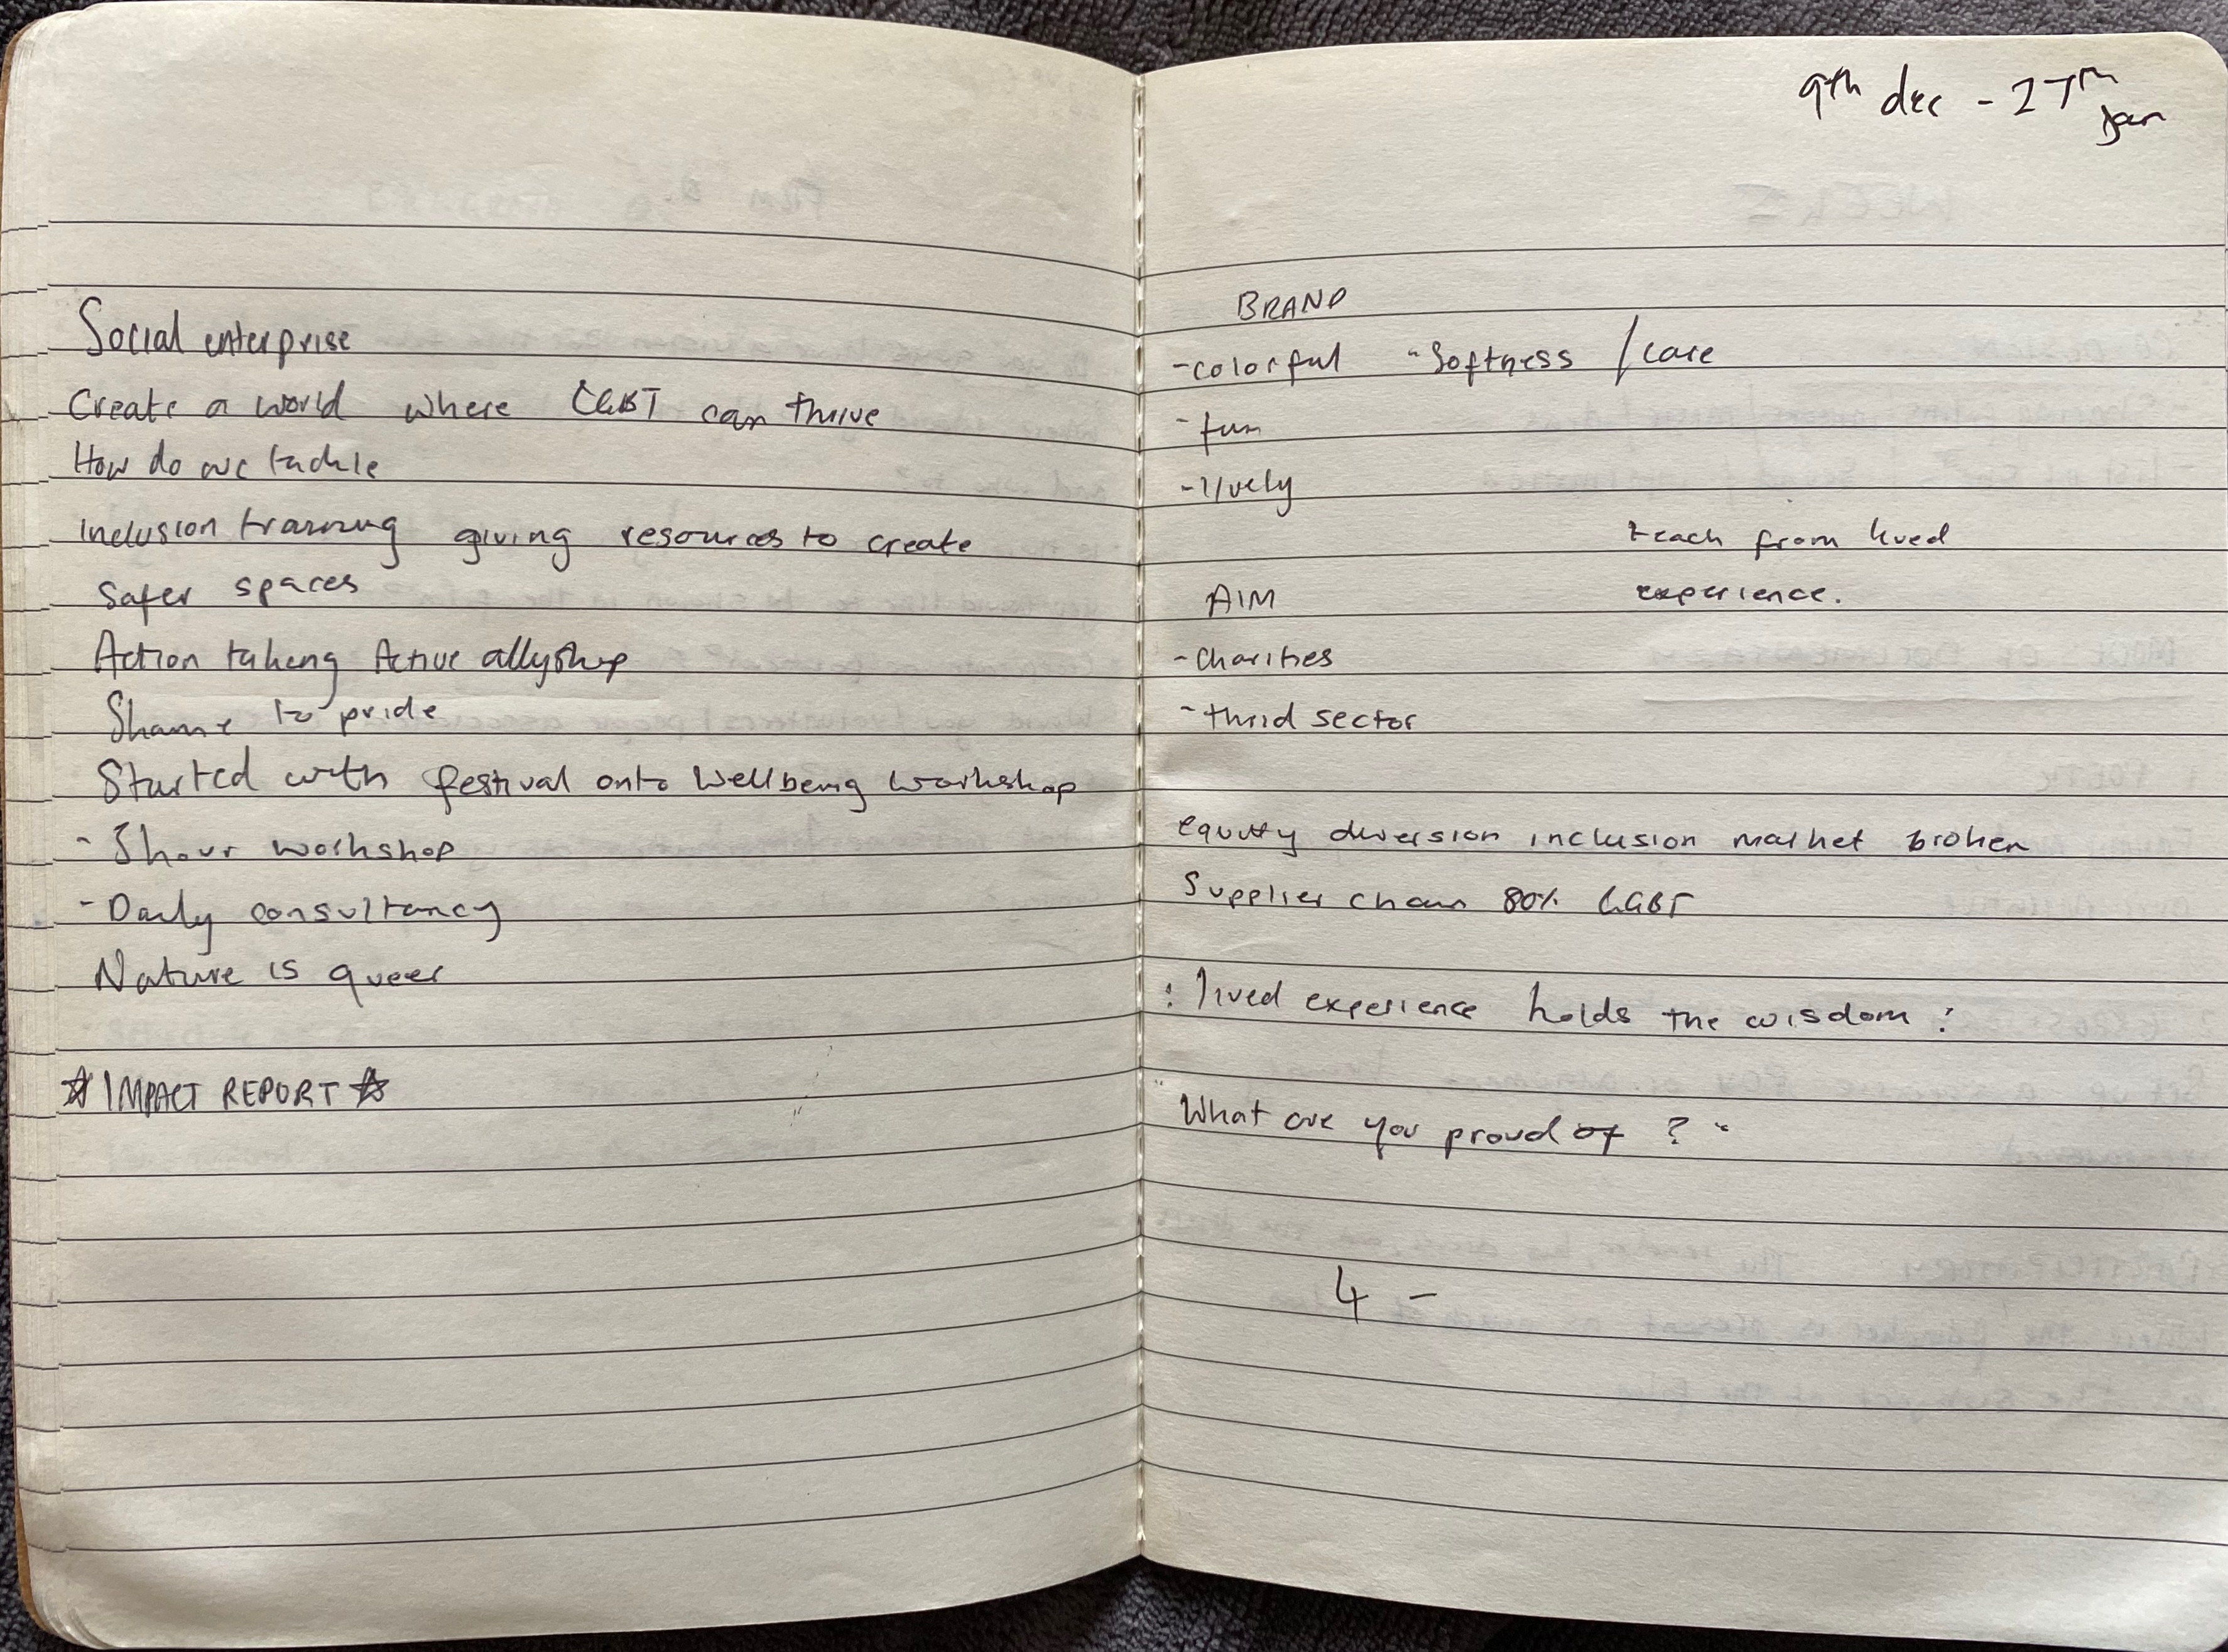 Social enterprise
Create a world where LGBT can thrive
How do we tackle
Inclusion training giving resources to create
safer spaces
Action taking Active allyship
Shame to pride
Started with festival onto Wellbeing workshop
- 5hour workshop
- Daily consultancy
Nature is queer
☆ IMPACT REPORT ☆
9th dec - 27th
Jan
BRAND
- colorful - Softness / care
- fun
- lively
teach from lived
experience.
AIM
- Charities
- third sector
equity diversion inclusion market broken
Supplier chain 80% LGBT
: lived experience holds the wisdom :
"What are you proud of ? "
4 -